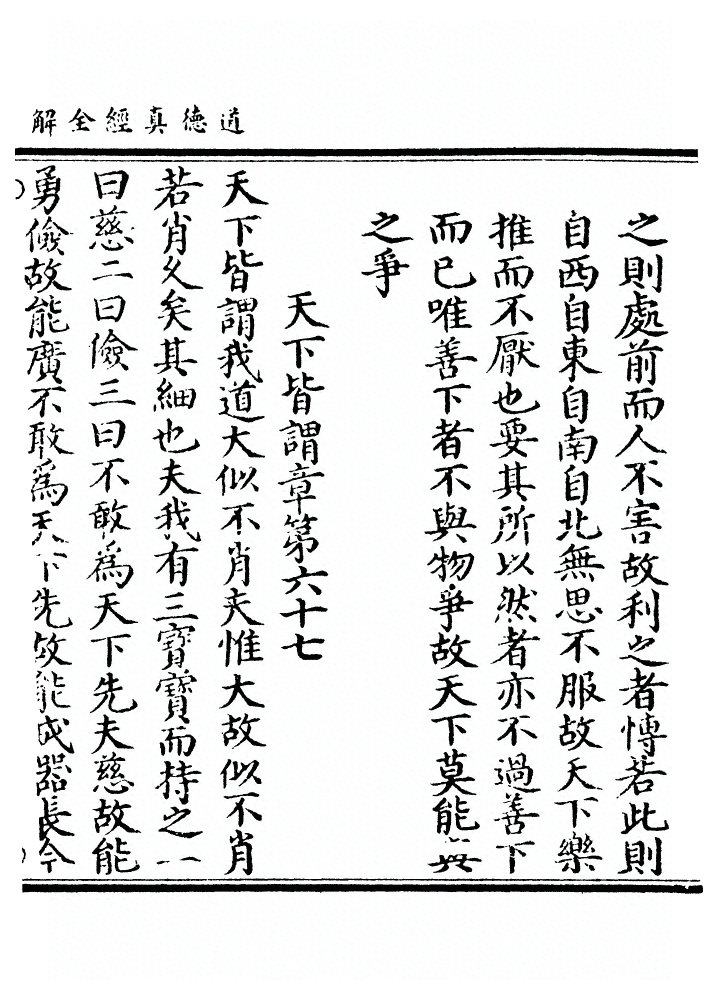 道德真經全解
之則處前而人不害故利之者愽若此則
自西自東自南自北無思不服故天下樂
推而不厭也要其所以然者亦不過善下
而已唯善下者不與物爭故天下莫能與
之爭
天下皆謂章第六十七
天下皆謂我道大似不肖夫惟大故似不肖
若肖久矣其細也夫我有三寶寶而持之一
曰慈二曰儉三曰不敢為天下先夫慈故能
勇儉故能廣不敢為天下先故能成器長今